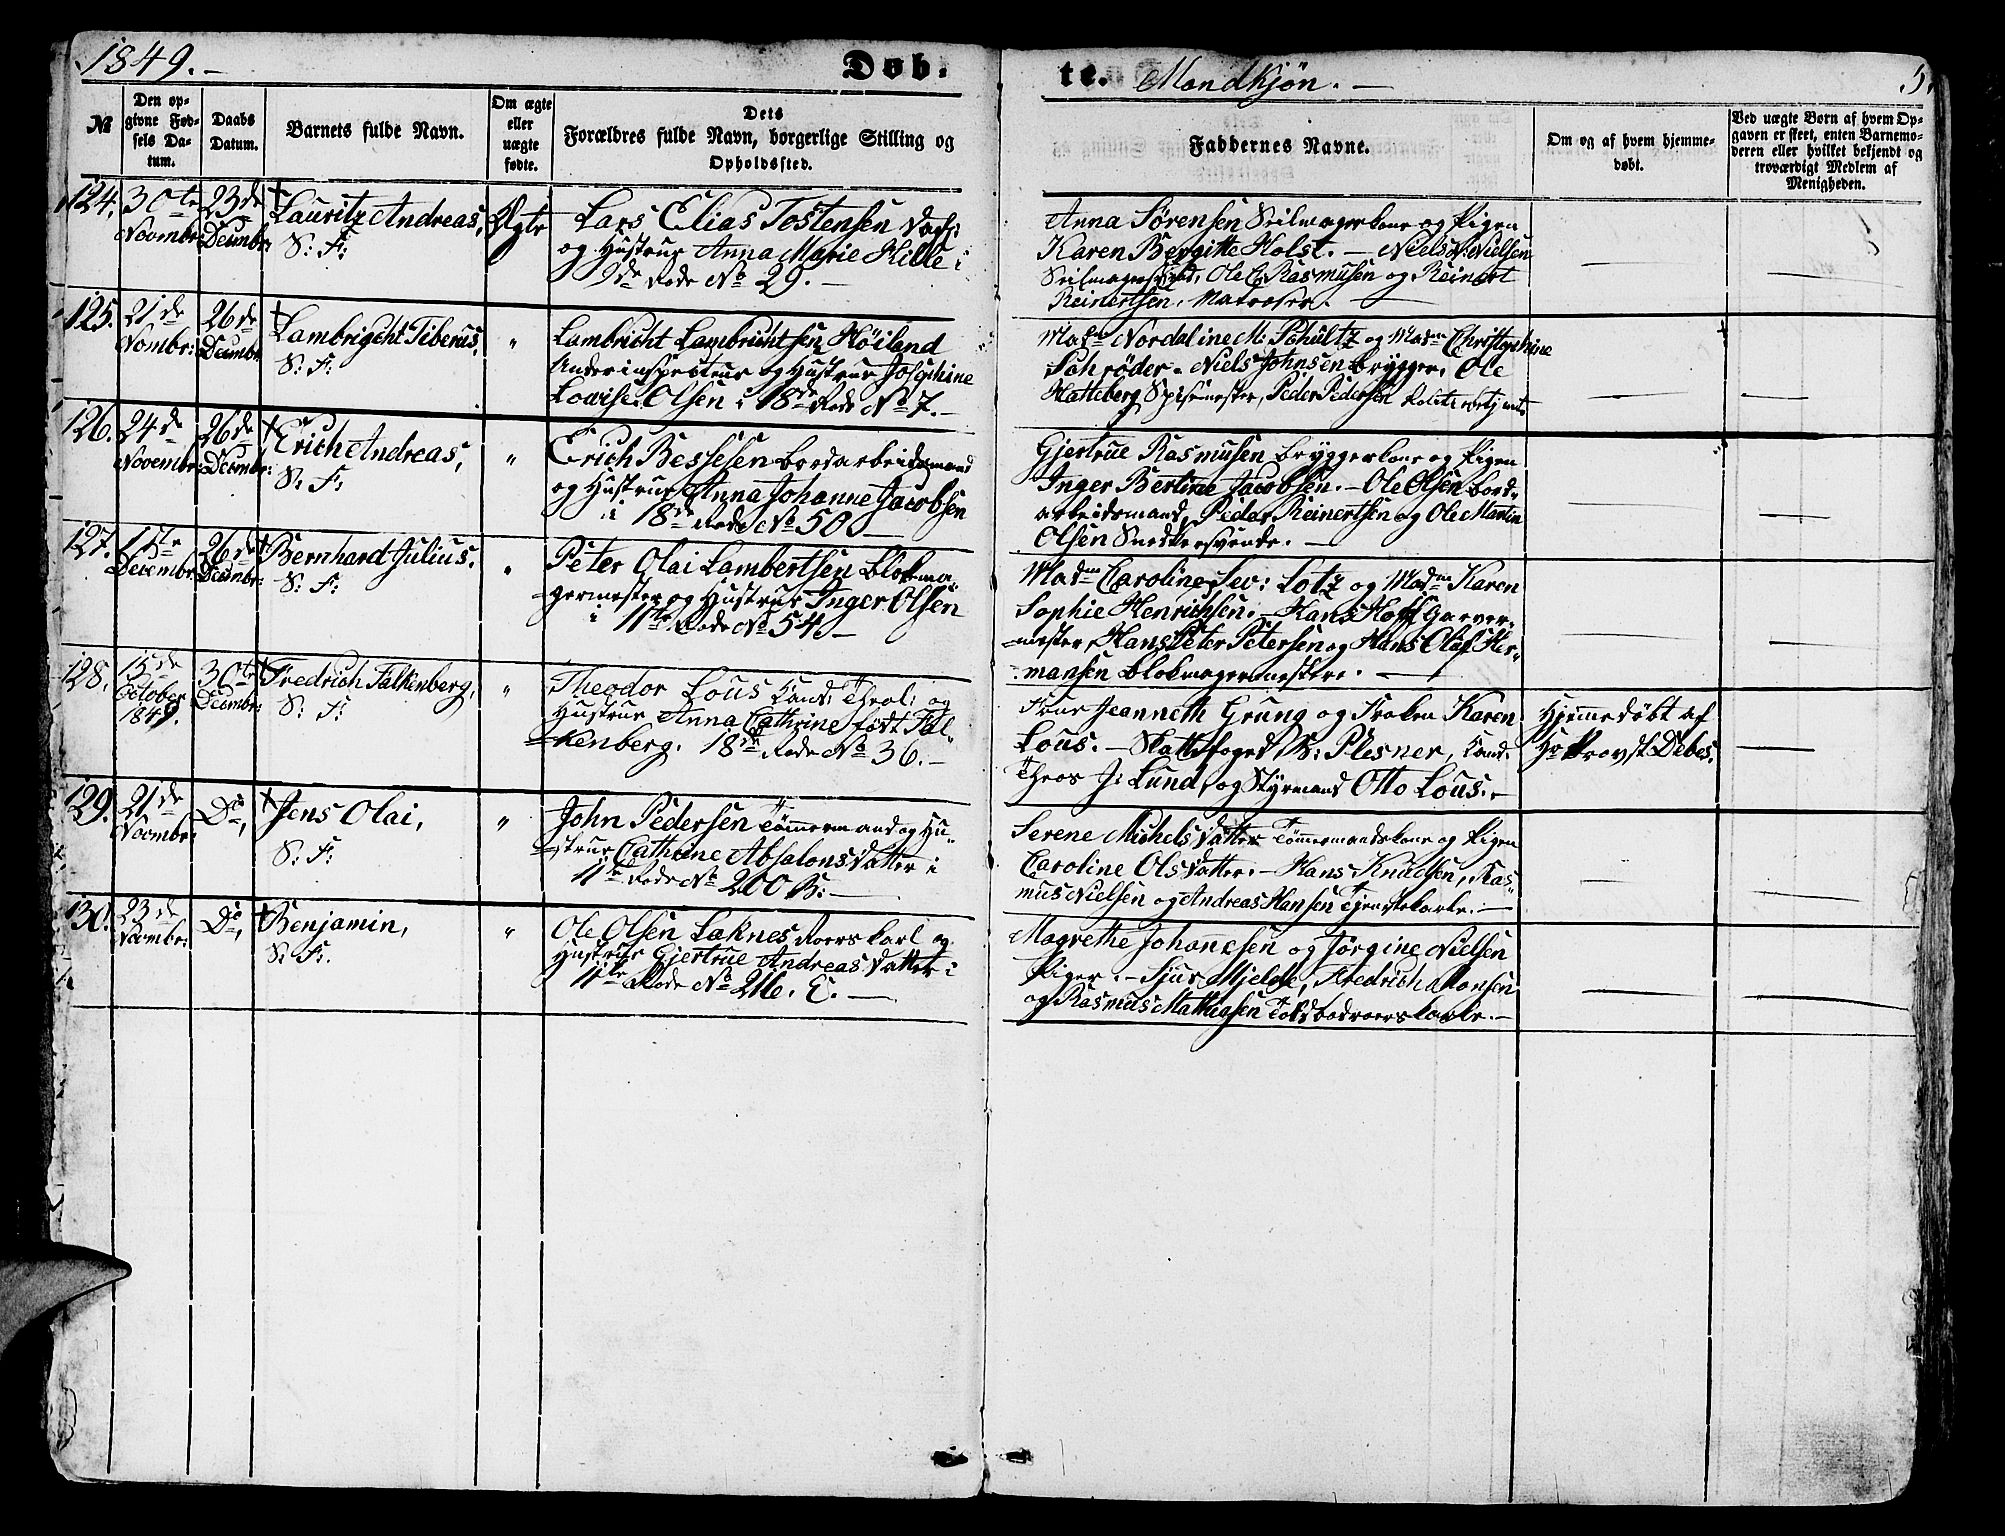 1849.
Døb.
te. Mandkjøn. —
5.
№
Den op-
givne Fød-
sels Da-
tum.
Daabs
Datum.
Barnets fulde Navn.
Om ægte
eller
uægte
fødte.
Dets
Forældres fulde Navn, borgerlige Stilling og
Opholdssted.
Faddernes Navne.
Om og af hvem hjemme-
døbt.
Ved uægte Børn af hvem Op-
gaven er skeet, enten Barnemo-
deren eller hvilket bekjendt og
troværdigt Medlem af
Menigheden.
124.
30te
Novmbr:
23de
Decmbr:
Lauritz Andreas,
S: F:
Ægte
Lars Elias Tostensen
og Hustrue Anna Marie Hille i
9de Rode No 29. —
Anna Sørensen Seilmagerkone og Pigen
Karen Bergitte Holst. — Niels N: Nielsen
Seilmagersvend, Ole C. Rasmusen og Reinert
Reinertsen, Matroser. —
125.
21de
Nombr:
26de
Decmbr
Lambrigcht Tiberius,
S: F:
"
Lambricht Lambrichtsen Høiland
Underinspecteur og Hustrue Josephine
Lovise Olsen i 18de Rode No 7. —
Madm Nordaline M: Schultz og Madm Christophine
Schrøder. Niels Johnsen brygger, Ole
Hatteberg Spisemester, Peder Pedersen Politiebetjent
126.
24de
Novembr:
26de
Decmbr:
Erich Andreas,
S: F:
"
Erich Bessesen bordarbeidsmand
og Hustrue Anna Johanne Jacobsen
i 18de Rode No 50 —
Gjertrue Rasmusen bryggerkone og Pigen
Inger Bertine Jacobsen. — Ole Olsen bord-
arbeidsmand, Peder Reinertsen og Ole Martin
Olsen Snedkersvende. —
127.
15te
Decembr.
26de
Decmbr:
Bernhard Julius.
S: F:
"
Peter Olai Lambertsen Blokma-
germester og Hustrue Inger Olsen
i 11te Rode No 54. —
Madm Caroline Sev: Lotz og Madm Karen
Sophie Henrichsen. — Hans Hoff Garver-
mester, Hans Peter Petersen og Hans Olaf Her-
mansen blokmagermestere. —
128.
15de
October
1849.
30te
Decmbr:
Fredrich Falkenberg,
S: F:
"
Theodor Lous Cand: Theol: og
Hustrue Anna Cathrine født Fal-
kenberg. 18de Rode No 36. —
Frue Jeanneth Grung og Frøken Karen
Lous. — Skattefoged M: Plesner, Cand:
Theos J: Lund, og Styrmand Otto Lous. —
Hjemmedøbt af
Hr Provst Debes.
129.
21de
Novmbr:
Do,
Jens Olai,
S: F:
"
John Pedersen Tømmermand og Hu-
strue Cathrine Absalons Datter i
11te Rode No 200 B: —
Serene Michels Datter Tømmermandskone og Pigen
Caroline Ols Datter. — Hans Knudsen, Ras-
mus Nielsen og Andreas Hansen Tjenestekarle. —
130.
23de
Novmbr:
Do,
Benjamin,
S: F:
"
Ole Olsen Laknes Roerskarl og
Hustrue Gjertrue Andreas Datter i
11te Rode No 216. E. —
Magrethe Johannesen og Jørgine Nielsen
Piger. — Sjur Mjelde, Fredrich Monsen
og Rasmus Mathiesen Toldbodroerskarle. —